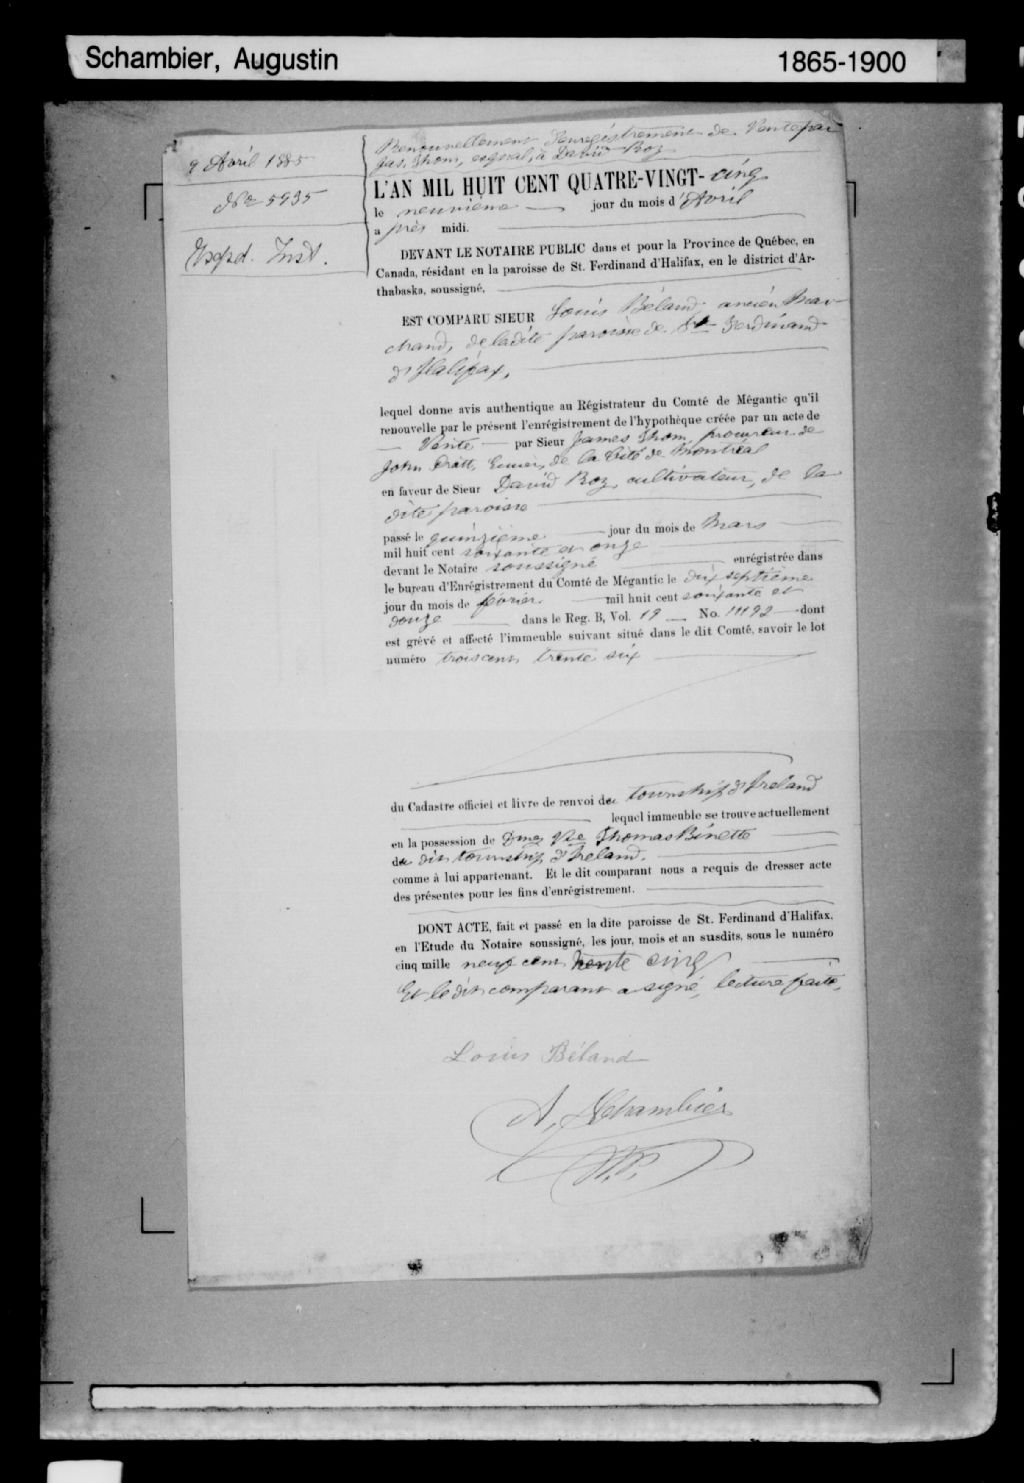 Schambier, Augustin
1865-1900
9 Avril 1885
No 5935
Expd. Inst.
Renouvellement d'enregistrement de Vente par
Jas. Thom, esqual, à David Roz
L'AN MIL HUIT CENT QUATRE-VINGT-cinq
le neuvième jour du mois d'Avril
après midi.
DEVANT LE NOTAIRE PUBLIC dans et pour la Province de Québec, en
Canada, résidant en la paroisse de St. Ferdinand d'Halifax, en le district d'Ar-
thabaska, soussigné,
EST COMPARU SIEUR Louis Béland, ancien Mar-
chand, de la dite paroisse de St Ferdinand
d'Halifax,
lequel donne avis authentique au Régistrateur du Comté de Mégantic qu'il
renouvelle par le présent l'enrégistrement de l'hypothèque créée par un acte de
Vente par Sieur James Thom, procureur de
John Pratt, Ecuier, de la Cité de Montréal
en faveur de Sieur David Roz, cultivateur, de la
dite paroisse
passé le quinzième jour du mois de Mars
mil huit cent soixante et onze
devant le Notaire soussigné enrégistrée dans
le bureau d'Enrégistrement du Comté de Mégantic le dix septième
jour du mois de février mil huit cent soixante et
douze dans le Reg. B, Vol. 19 No. 11192 dont
est grévé et affecté l'immeuble suivant situé dans le dit Comté, savoir le lot
numéro trois cent trente six
du Cadastre officiel et livre de renvoi du township d'Ireland
lequel immeuble se trouve actuellement
en la possession de Dme Vve Thomas Binette
du dit township d'Ireland.
comme à lui appartenant. Et le dit comparant nous a requis de dresser acte
des présentes pour les fins d'enrégistrement.
DONT ACTE, fait et passé en la dite paroisse de St. Ferdinand d'Halifax,
en l'Etude du Notaire soussigné, les jour, mois et an susdits, sous le numéro
cinq mille neuf cent trente cinq
Et le dit comparant a signé, lecture faite.
Louis Béland
A. Schambier
N.P.